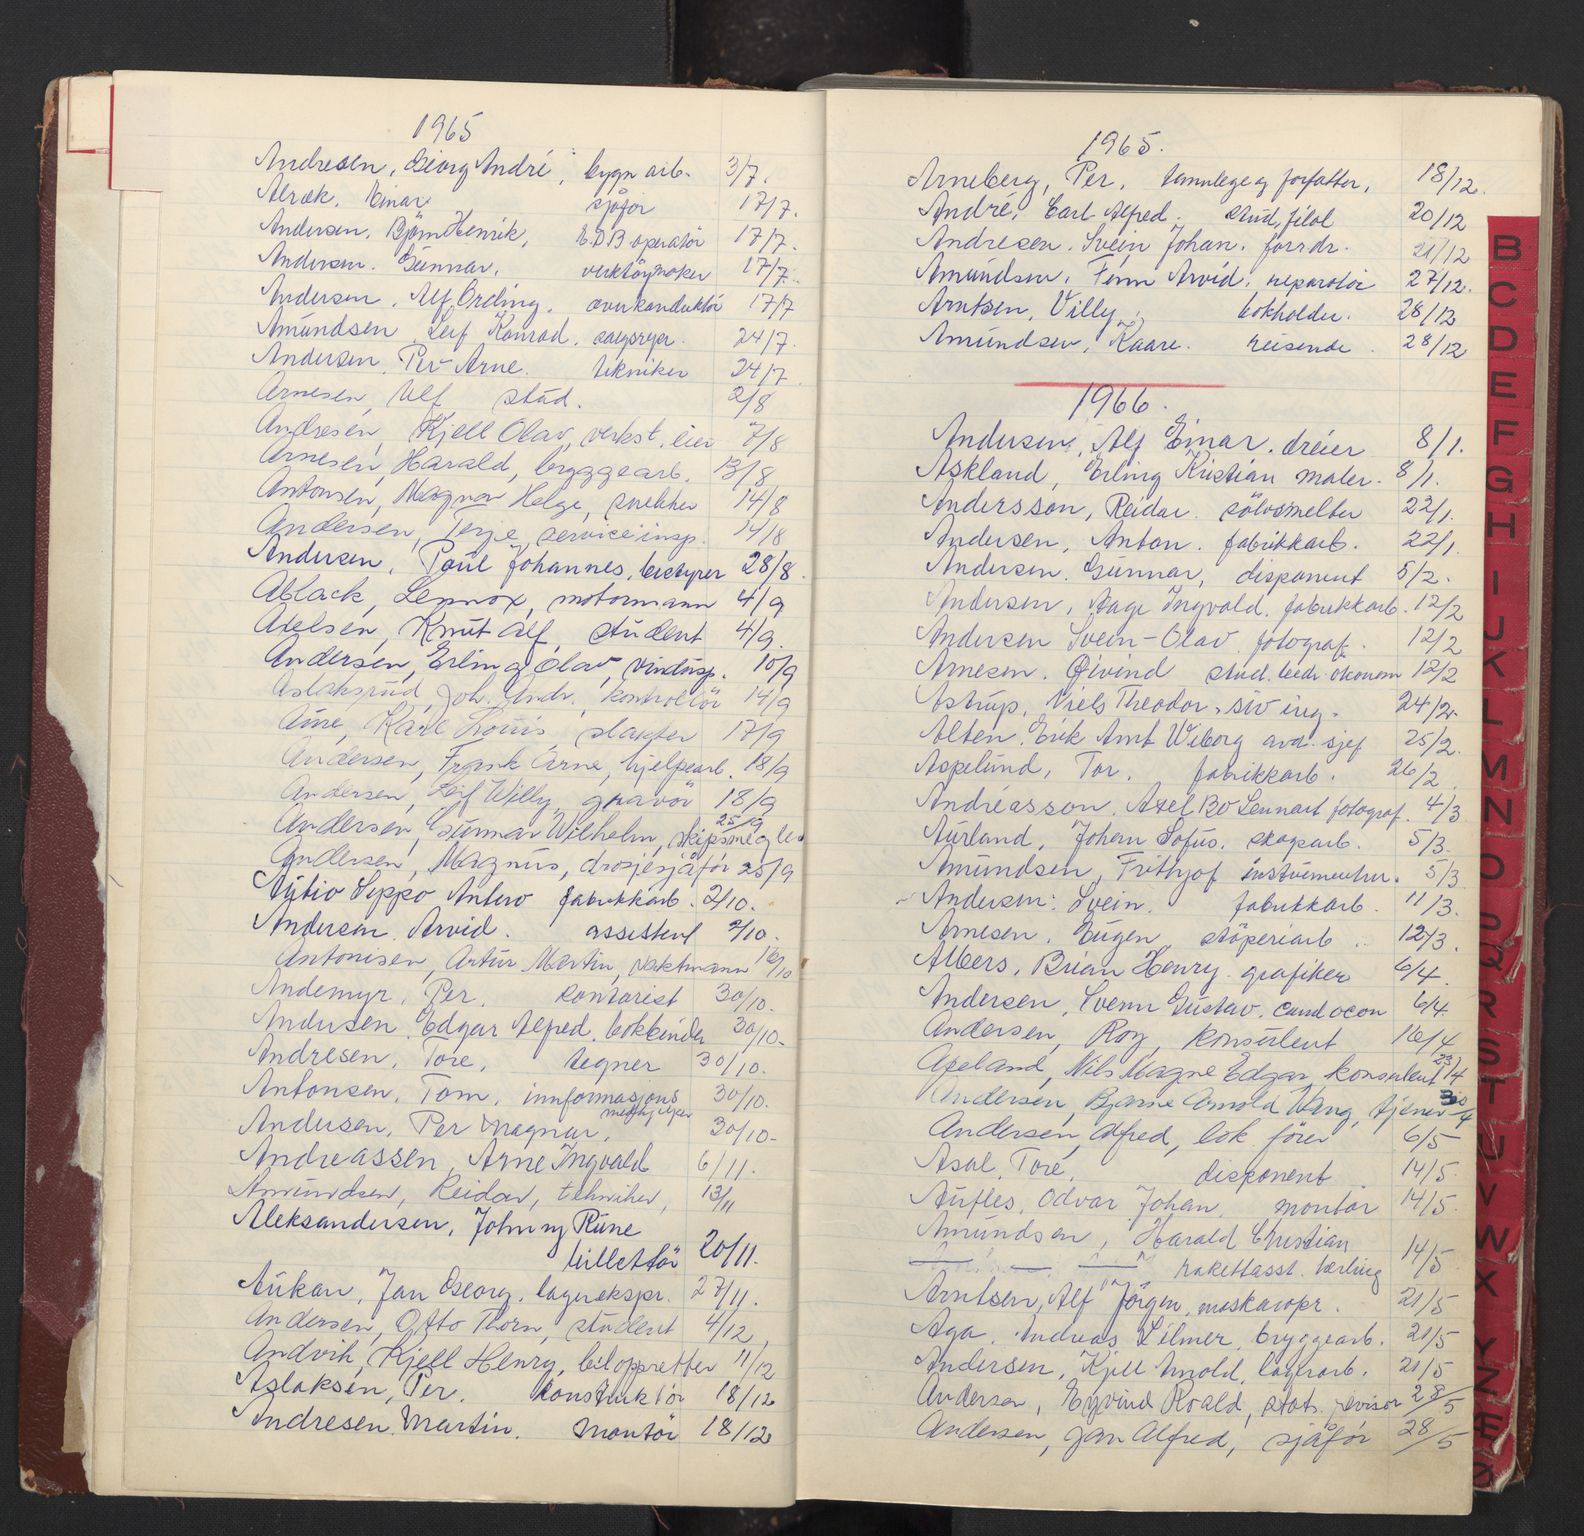 1965
Andresen, Georg André, bygn arb. 3/7.
Alræk, Einar sjåfør 17/7.
Andersen, Björn Henrik, EDB operatör 17/7.
Andersen. Gunnar, verktöymaker 17/7.
Andersen, Alf Erding, overkonduktör 17/7
Amundsen Leif Konrad. 24/7.
Andersen, Per Arne. tekniker 24/7
Arnesen, Ulf stud. 2/8
Andresen, Kjell Olav, verkst. eier 7/8
Arnesen, Harald, bryggearb. 13/8
Antonsen, Magnar Helge, snekker 14/8
Andersen, Terje, service insp. 14/8
Andersen, Poul Johannes, 28/8.
Ablack, Lennox, motormann 4/9
Axelsen, Knut Alf, student 4/9.
Andersen, Erling Olav, vindusp. 10/9
Aslaksrud, Joh. Andr., kontrollör 14/9
Aune, Karl Louis slakter 17/9
Andersen, Frank Arne, hjelpearb. 18/9
Andersen, Leif Willy, gravör 18/9
Andersen, Gunnar Wilhelm, skipsmegler 25/9
Andersen, Magnus, drosjesjåför 25/9
Äytiö Seppo Antero fabrikkarb. 2/10.
Andersen, Arvid. assistent 9/10.
Antonisen, Artur Martin, vaktmann 16/10
Andemyr, Per. kontorist 30/10.
Andersen, Edgar Alfred, bokbinder 30/10.
Andresen, Tore, tegner 30/10.
Antonsen, Tom, innformasjons medhjelper 30/10.
Andersen, Per Magnar, 30/10-
Andreassen, Arne Ingvald 6/11.
Amundsen, Reidar, tekniker, 13/11
Aleksandersen, Johnny Rune
billettör 20/11.
Aukan, Jan Georg. lagerekspr. 27/11.
Andersen, Otto Thorn, student 4/12
Andvik, Kjell Henry, biloppretter 11/12
Aslaksen, Per. konstruktör 18/12
Andresen Martin. montör 18/12

1965.
Arneberg, Per, tannlege og forfatter, 18/12.
André, Carl Alfred. stud, filol 20/12
Andresen, Svein Johan, forr dr. 21/12
Amundsen, Finn Arvid, reparatör 27/12.
Arntsen, Villy, bokholder. 28/12
Amundsen, Kaare. reisende. 28/12
1966.
Andersen, Alf Einar. dreier 8/1.
Askland, Erling Kristian maler. 8/1.
Andersson, Reidar. sölvsmelter 22/1.
Andersen, Anton. fabrikkarb. 22/1.
Andersen. Gunnar, disponent 5/2.
Andersen, Aage Ingvald. fabrikkarb. 12/2
Andersen Svein-Olav. fotograf. 12/2
Arnesen. Øivind stud. bedr. økonom 12/2
Astrup, Niels Theodor, siv ing. 24/2.
Alten, Erik Arnt Wiborg avd. sjef 25/2.
Aspelund, Tor. fabrikkarb. 26/2.
Andreasson, Axel Bo Lennart fotograf. 4/3
Aurland, Johan Sofus. skogsarb. 5/3.
Amundsen, Frithjof instrumentm. 5/3
Andersen. Svein. fabrikkarb. 11/3.
Arnesen, Eugen, stöperiarb. 12/3.
Albers, Brian Henry. grafiker 6/4.
Andersen, Svenn Gustav, cand oecon 6/4.
Andersen, Roy, konsulent 16/4
Apeland, Nils Magne Edgar, konsulent 23/4
Andersen, Bjarne Arnold Wang, tjener 30/4
Andersen, Alfred, bok förer 6/5
Asal Tore, disponent 14/5.
Aufles, Odvar Johan, montör 14/5.
Amundsen, Harald Christian
rakettasst. lærling 14/5
Arntsen, Alf Jörgen, maskinopr. 21/5
Aga, Andreas Hilmer, bryggearb. 21/5
Andersen, Kjell Arnold, lagerarb. 21/5
Andersen, Eyvind Roald, stats. revisor 28/5
Andersen, Jan Alfred, sjåför 28/5
B
C
D
E
F
G
H
I
J
K
L
M
N
O
P
Q
R
S
T
U
V
W
X
Y
Z
Æ
Ø